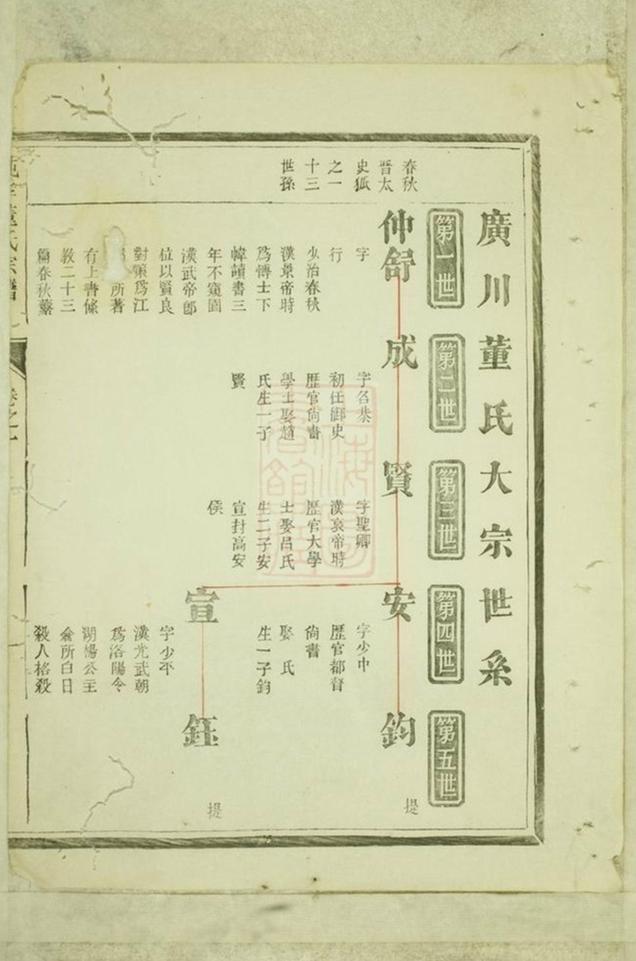 廣川董氏大宗世系
第一世
第二世
第三世
第四世
第五世
春秋
晉太
史狐
之一
十三
世孫
仲舒
字
行
少治春秋
漢景帝時
爲博士下
幃讀書三
年不窺園
漢武帝即
位以賢良
對策爲江
所著
有上書條
教二十三
篇春秋蘩
成
字名恭
初任御史
歷官尙書
學士娶趙
氏生一子
賢
賢
字聖卿
漢哀帝時
歷官大學
士娶呂氏
生二子安
宣封高安
侯
安
字少中
歷官都督
尙書
娶氏
生一子鈞
鈞
提
宣
字少平
漢光武朝
爲洛陽令
湖陽公主
奴白日
殺人格殺
鈺
提
董氏宗譜
卷之